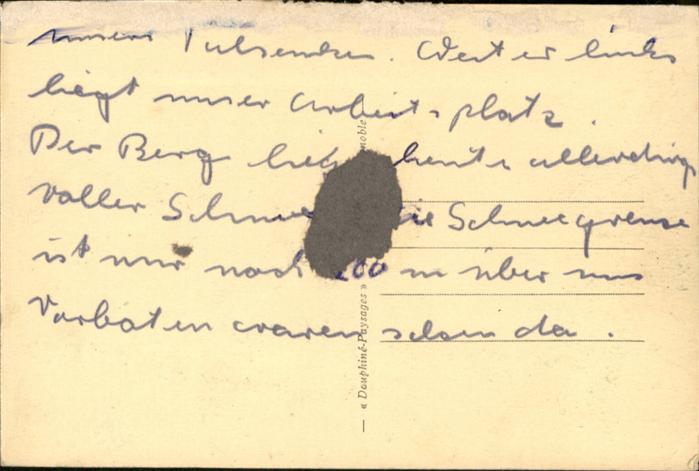 unsere. Weiter links
liegt unser Arbeitsplatz.
Der Berg heute allerdings
voller Schnee die Schneegrenze
ist nur noch 200 m über uns
Vorboten waren schon da.
« Dauphiné-Paysages » noble